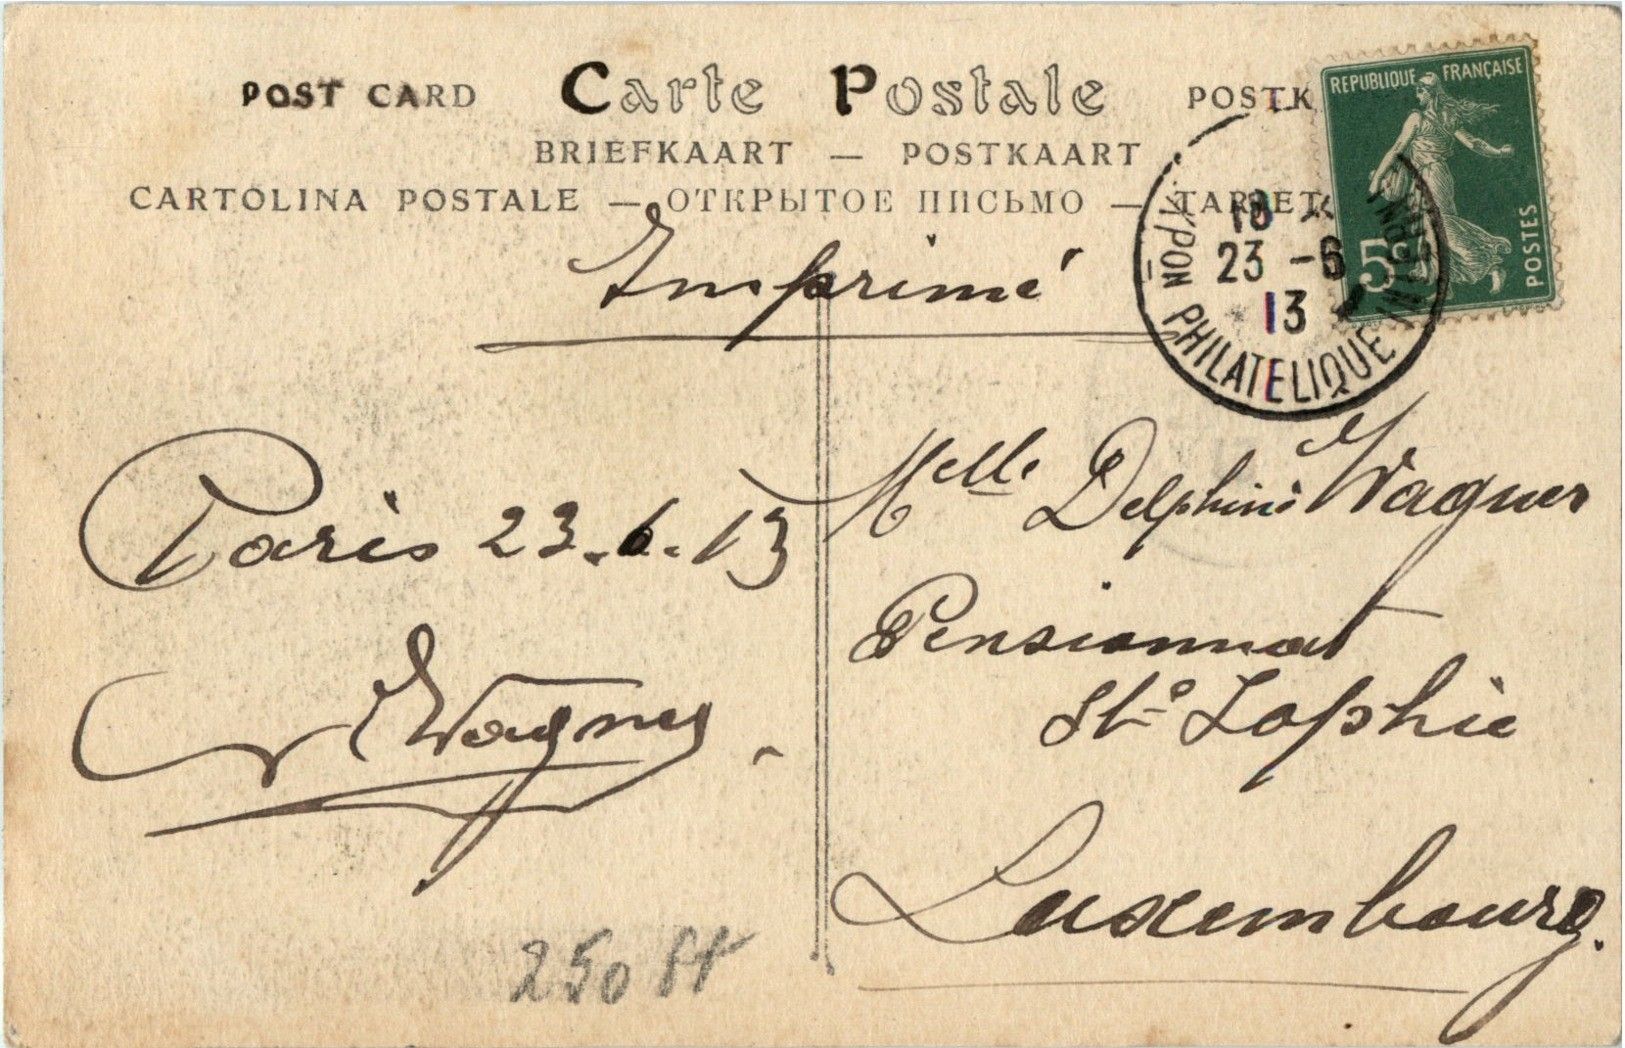 POST CARD Carte Postale POSTK
BRIEFKAART — POSTKAART
CARTOLINA POSTALE — ОТКРЫТОЕ ПИСЬМО —
REPUBLIQUE FRANÇAISE
5c
POSTES
18
23 -6
13
PHILATELIQUE
Imprimé
Paris 23.6.13
Wagner
Melle Delphine Wagner
Pensionnat
Ste Sophie
Luxembourg.
250